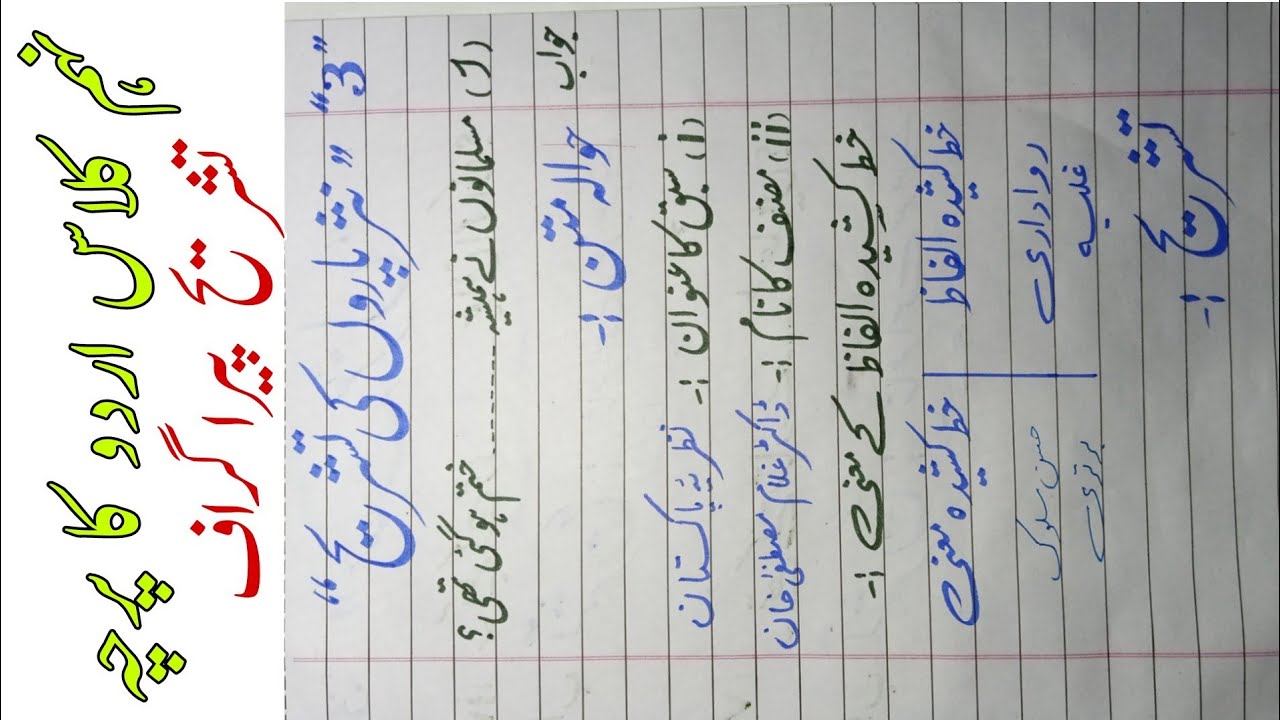 نہم کلاس اردو کا پرچہ
تشریح پیراگراف
"نثر پاروں کی تشریح" "3"
مسلمانوں نے ہمیشہ ........ ختم ہو گئی تھی؟
جواب
حوالہ متن :-
(i) سبق کا عنوان :- نظریۂ پاکستان
(ii) مصنف کا نام :- ڈاکٹر غلام مصطفیٰ خان
خط کشیدہ الفاظ کے معنی :-
خط کشیدہ الفاظ خط کشیدہ معنی
رواداری حسن سلوک
غلبہ برتری
تشریح :-